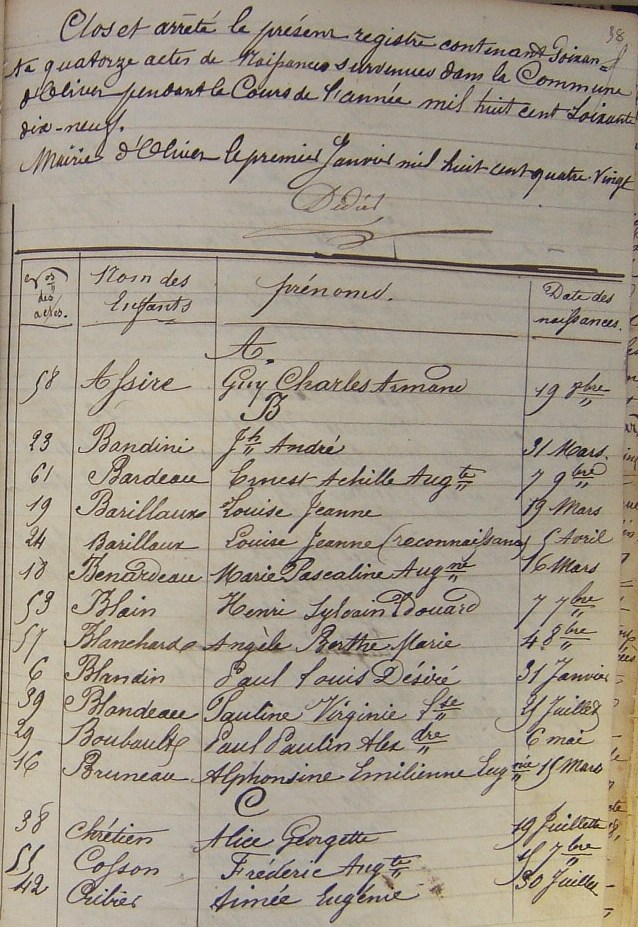 38
Clos et arrêté le présent registre contenant Soixan=
te quatorze actes de Naissances survenues dans la Commune
d'Olivet pendant le Cours de l'année mil huit cent soixante
dix-neuf.
Mairie d'Olivet le premier Janvier mil huit cent quatre-Vingt
Nos des actes. Nom des Enfants prénoms. Date des naissances.
A.
58 Assire Guy Charles Armand 19 8bre
B
23 Bandini Jh André 31 Mars.
61 Bardeau Ernest Achille Augte 7 9bre
19 Barillaux Louise Jeanne 19 Mars
24 Barillaux Louise Jeanne (reconnaissance) 5 Avril
18 Benardeau Marie Pascaline Augne 16 Mars
53 Blain Henri Sylvain Edouard 7 7bre
57 Blanchard Angèle Berthe Marie 4 8bre
6 Blandin Paul Louis Désiré 31 Janvier
39 Blondeau Pauline Virginie Lse 21 Juillet
29 Boubault Paul Paulin Alexdre 6 mai
16 Bruneau Alphonsine Emilienne Eugnie 15 Mars
C
38 Chrétien Alice Georgette 19 Juillet
55 Cosson Frédéric Augte 15 7bre
42 Cribier Aimée Eugénie 30 Juillet